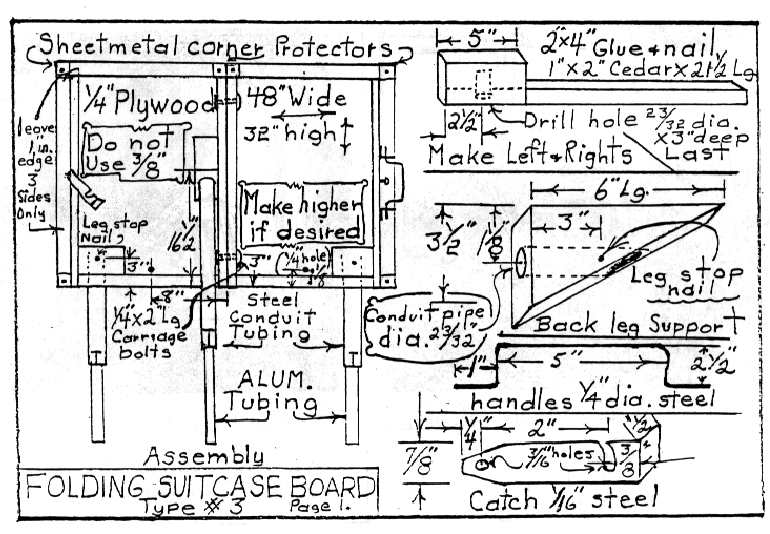 Sheetmetal corner Protectors
1/4" Plywood
48" Wide
32" high
Do not
Use 3/8"
leave
1" in.
edge
3
Sides
Only
Make higher
if desired
Leg stop
Nail,
3"
16 1/2"
3"
(1/4" hole)
1/8
8"
1/4" x 2" Lg
Carriage
bolts
Steel
Conduit
Tubing
ALUM.
Tubing
Assembly
FOLDING SUITCASE BOARD
Type #3 Page 1.
5"
2"x4" Glue & nail
1" x 2" Cedar x 21 1/2 Lg
2 1/2"
Drill hole 23/32 dia.
x 3" deep
Make Left & Rights Last
6" Lg.
3"
3 1/2"
1 1/8"
Leg stop
nail
Conduit pipe
dia. 23/32
Back leg Support
1"
5"
2 1/2"
handles 1/4" dia. steel
1/4"
2"
1/2
7/8"
3/16" holes
3/8
Catch 1/16" steel